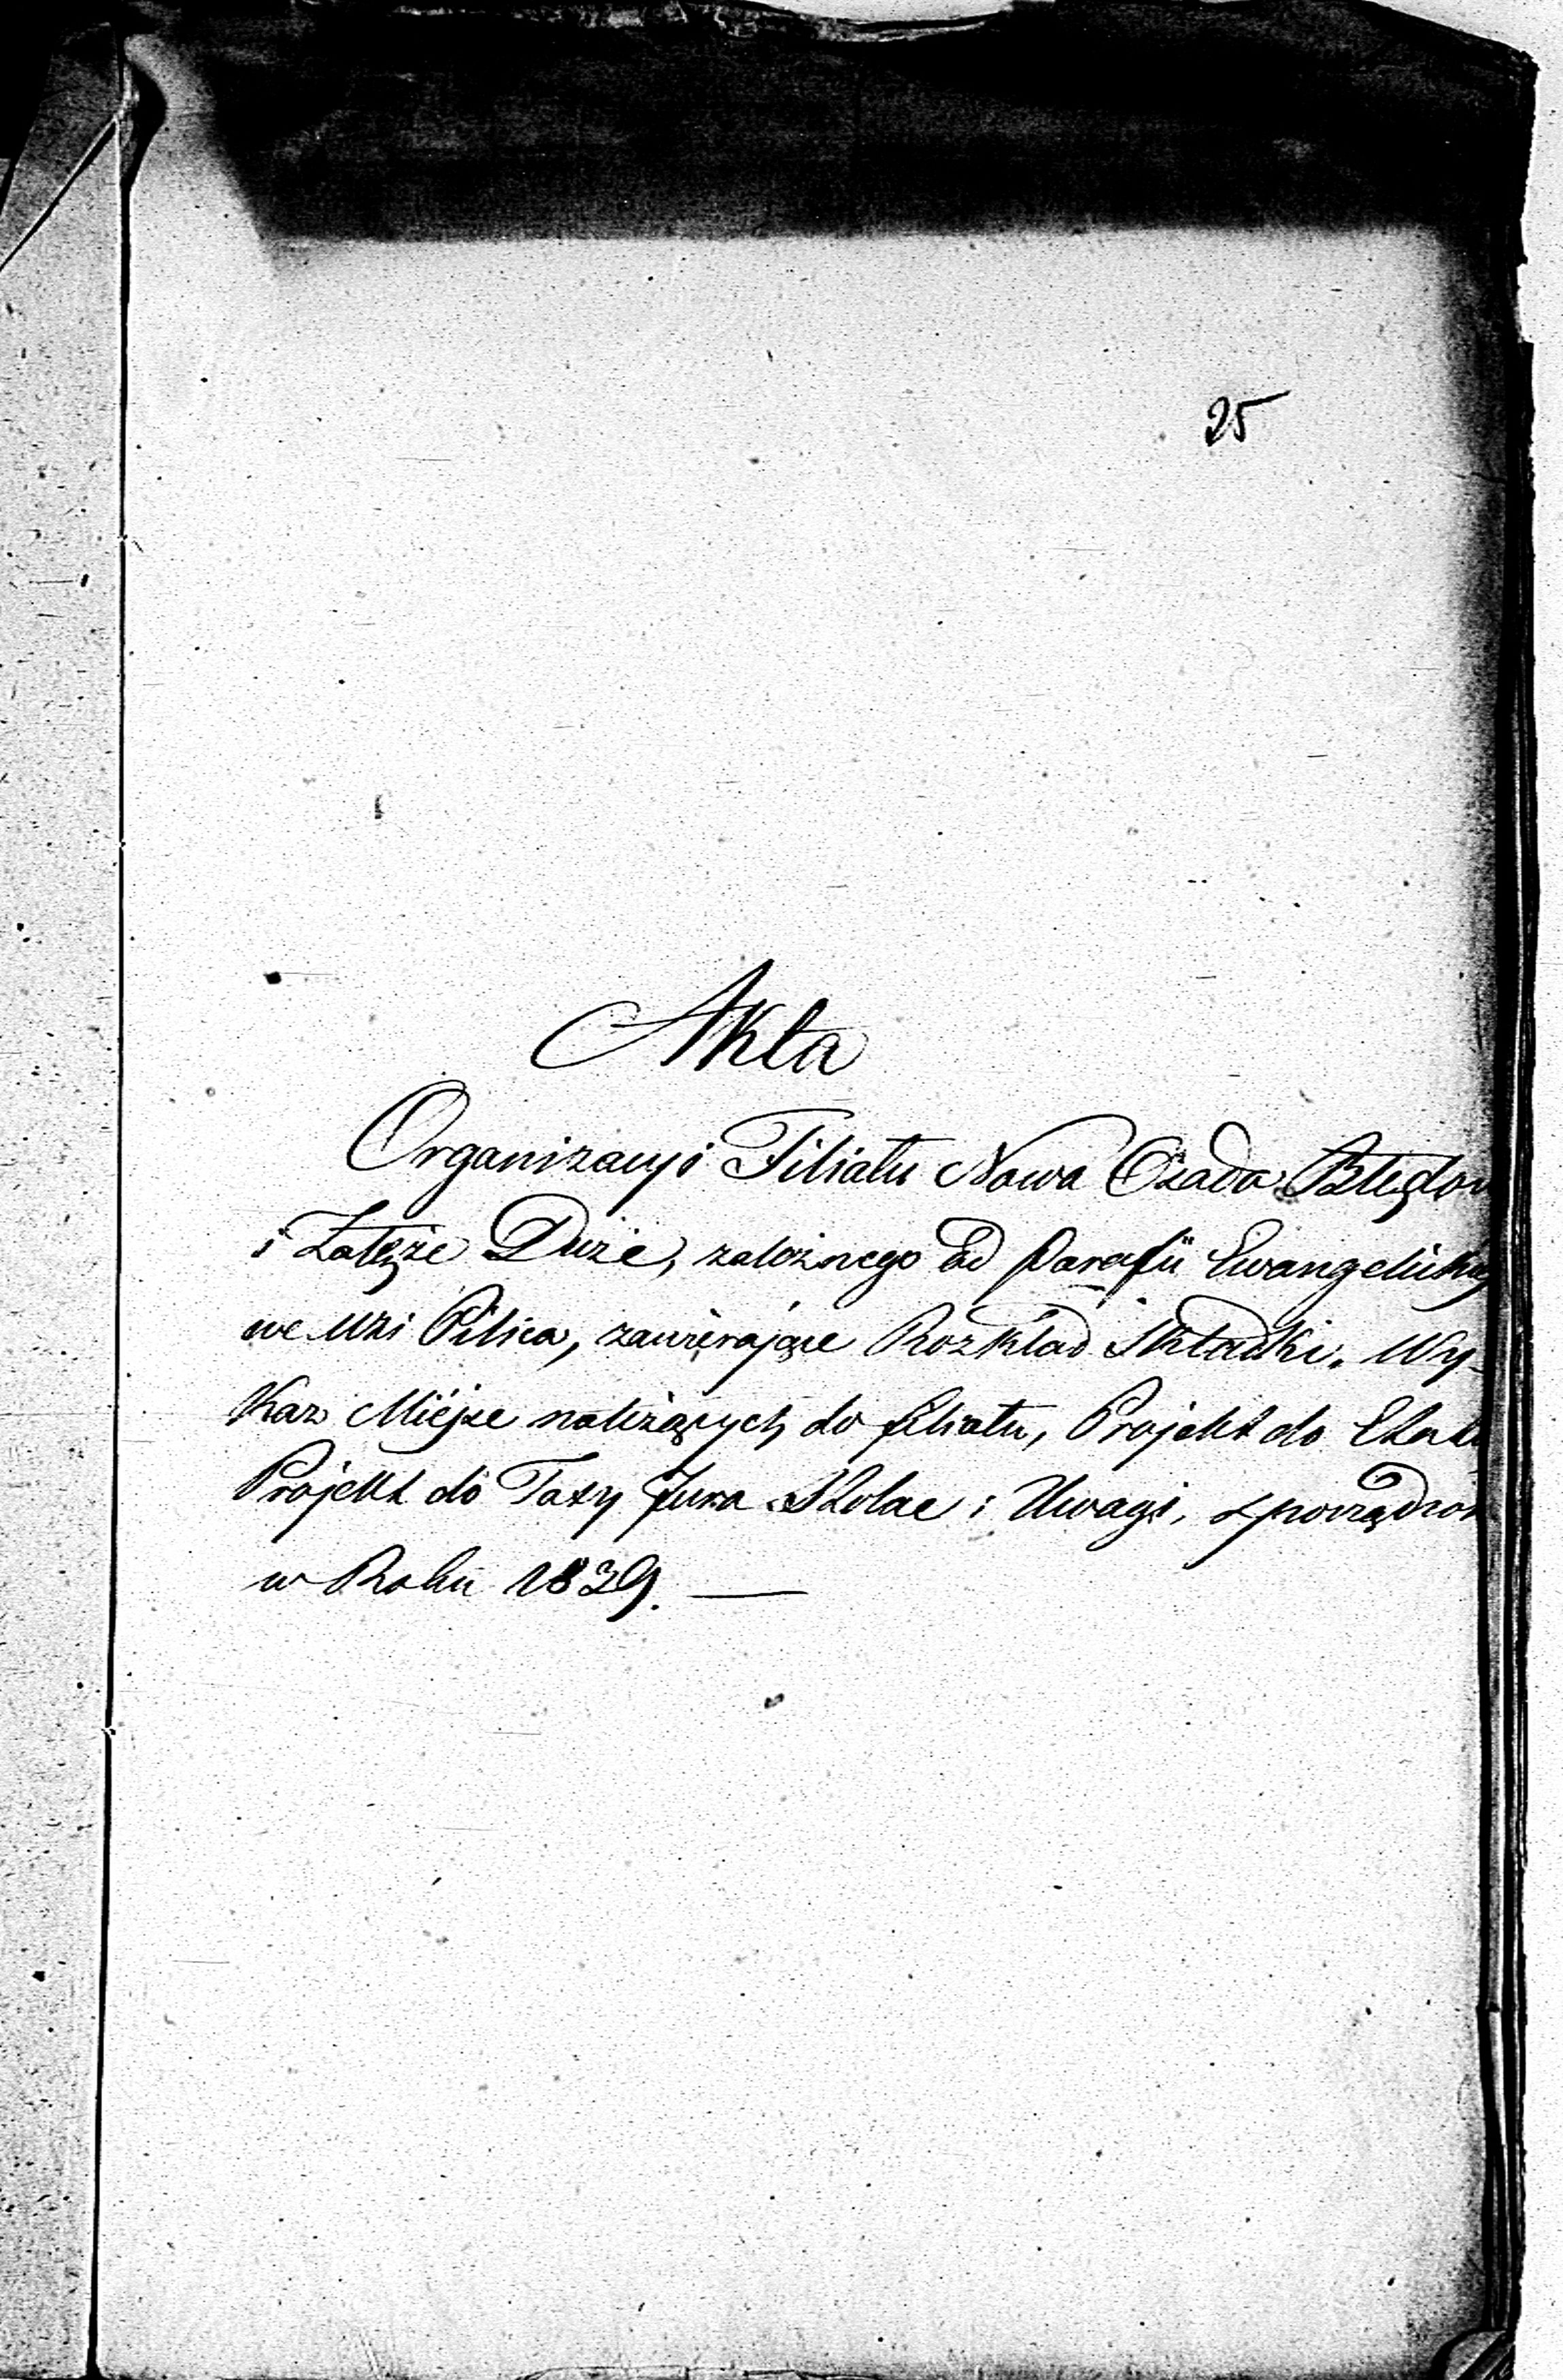 25
Akta
Organizacyi Filiału Nowa Osada Błędow
i Załęże Duże, zależnego od Parafii Ewangelickiej
we Wsi Pilica, zawierające Rozkład Składki. Wy-
kaz Miejsc należących do filiału, Projekt do Etatu
Projekt do Taxy Jura Stolae i Uwagi, sporządzon
w Roku 1839.